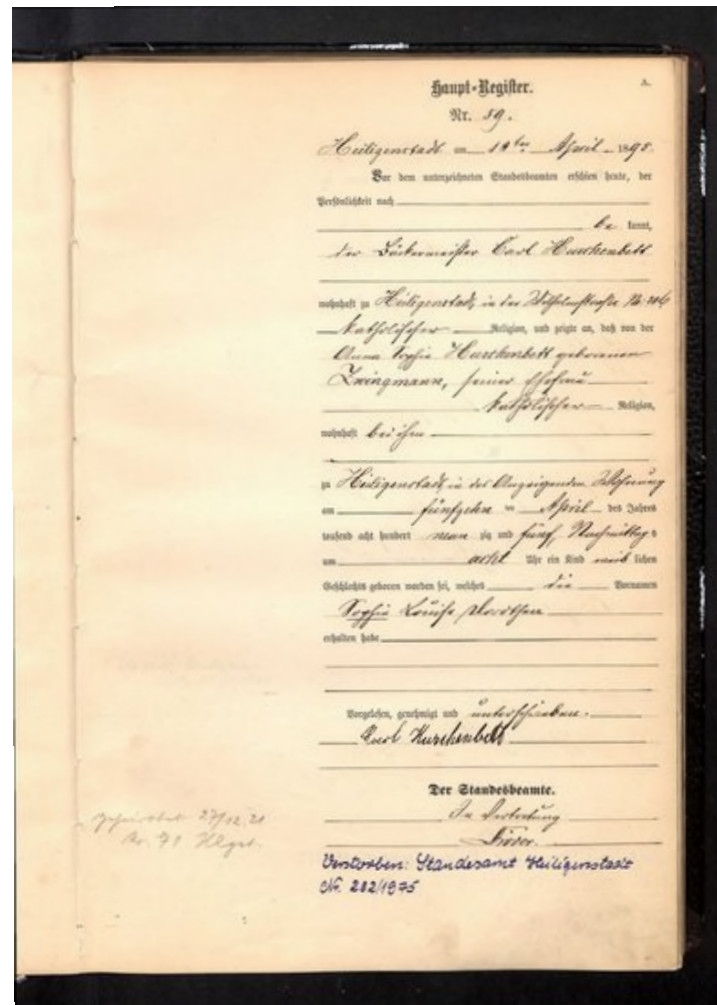 A.
Haupt-Register.
Nr. 59.
Heiligenstadt am 18ten April 1895.
Vor dem unterzeichneten Standesbeamten erschien heute, der
Persönlichkeit nach
be kannt,
der Bäckermeister Carl Hurschenbett
wohnhaft zu Heiligenstadt, in der Wilhelmstraße Nr.
katholischer Religion, und zeigte an, daß von der
Anna Sophie Hurschenbett geborenen
Zwingmann, seiner Ehefrau
katholischer Religion,
wohnhaft bei ihm
zu Heiligenstadt, in des Anzeigenden Wohnung
am fünfzehn ten April des Jahres
tausend acht hundert neun zig und fünf, Nachmittags
um acht Uhr ein Kind weib lichen
Geschlechts geboren worden sei, welches die Vornamen
Sophie Louise Dorothea
erhalten habe
Vorgelesen, genehmigt und unterschrieben.
Carl Hurschenbett
Der Standesbeamte.
In Vertretung
geheiratet 27/12.21
Nr. 71 Hlgst.
Verstorben: Standesamt Heiligenstadt
Nr. 282/1975